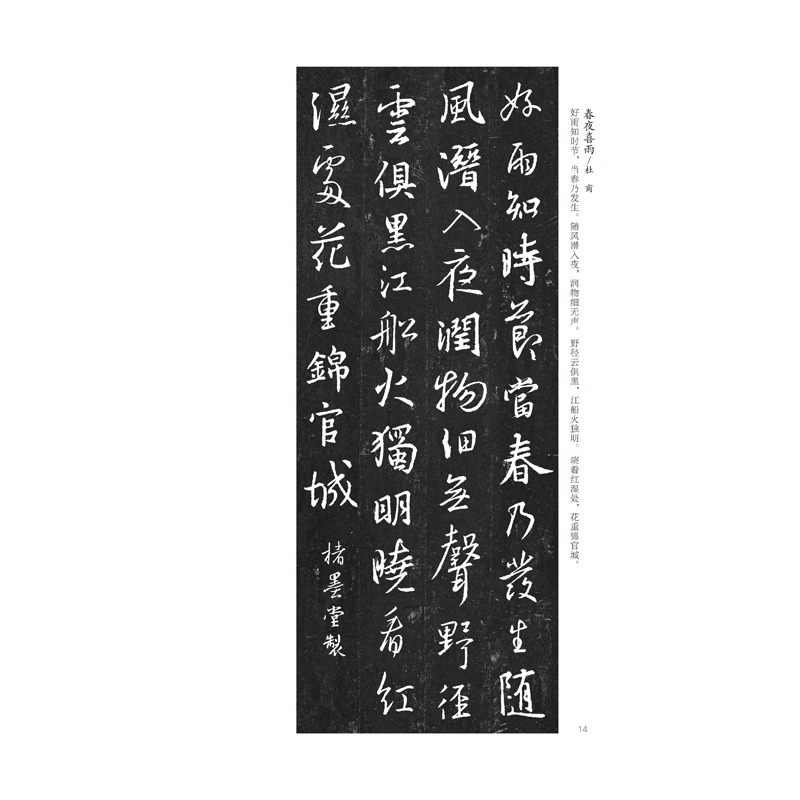 春夜喜雨/杜甫
好雨知时节，当春乃发生。随风潜入夜，润物细无声。野径云俱黑，江船火独明。晓看红湿处，花重锦官城。
好雨知時節當春乃發生随
風潛入夜潤物細無聲野徑
雲俱黑江船火獨明曉看紅
濕處花重錦官城
楮墨堂製
14